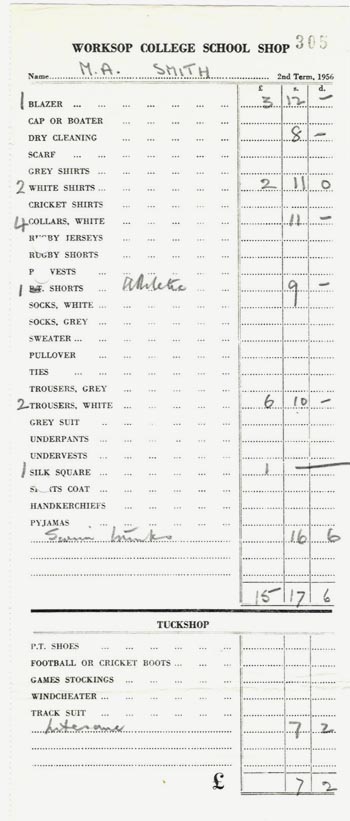 WORKSOP COLLEGE SCHOOL SHOP 305
Name M.A. SMITH 2nd Term, 1956
£ s. d.
1 BLAZER ... 3 12 -
CAP OR BOATER
DRY CLEANING 8 -
SCARF
GREY SHIRTS
2 WHITE SHIRTS ... 2 11 0
CRICKET SHIRTS
4 COLLARS, WHITE 11 -
RUGBY JERSEYS
RUGBY SHORTS
P VESTS
1 SHORTS athletic 9 -
SOCKS, WHITE
SOCKS, GREY
SWEATER ...
PULLOVER
TIES
TROUSERS, GREY
2 TROUSERS, WHITE 6 10 -
GREY SUIT
UNDERPANTS
UNDERVESTS
1 SILK SQUARE 1 —
SPORTS COAT
HANDKERCHIEFS
PYJAMAS
Swim trunks 16 6
15 17 6
TUCKSHOP
P.T. SHOES
FOOTBALL OR CRICKET BOOTS ...
GAMES STOCKINGS
WINDCHEATER
TRACK SUIT
7 2
£ 7 2